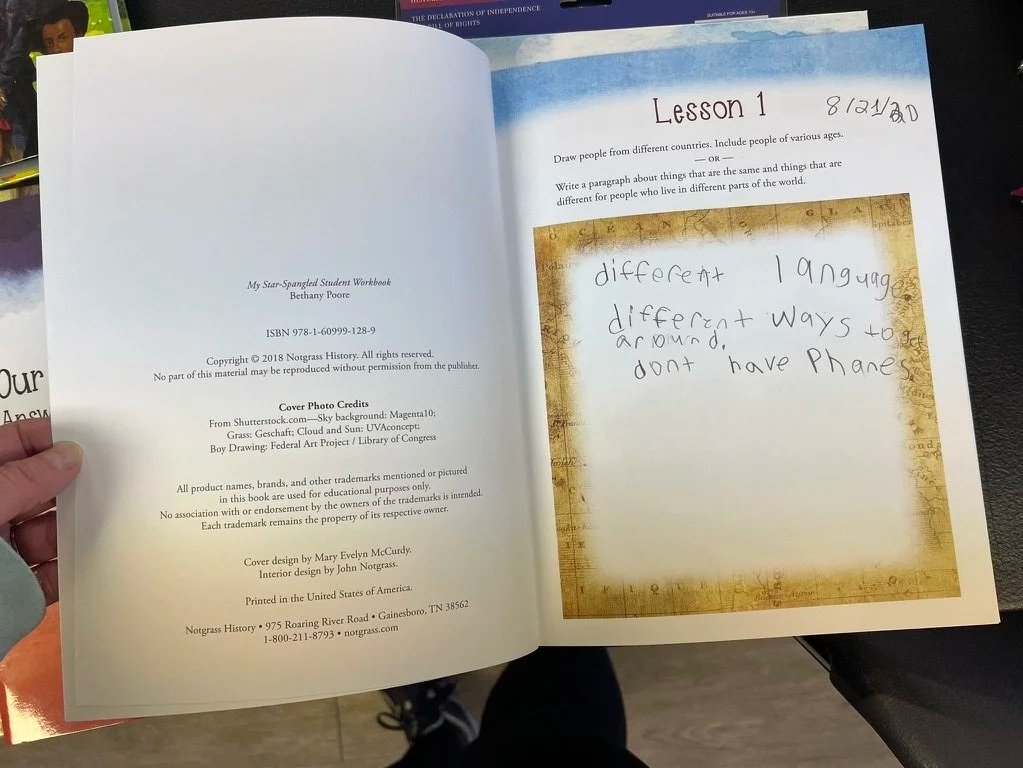 THE DECLARATION OF INDEPENDENCE
BILL OF RIGHTS
SUITABLE FOR AGES 10+
Our
Answ
My Star-Spangled Student Workbook
Bethany Poore
ISBN 978-1-60999-128-9
Copyright © 2018 Notgrass History. All rights reserved.
No part of this material may be reproduced without permission from the publisher.
Cover Photo Credits
From Shutterstock.com—Sky background: Magenta10;
Grass: Geschaft; Cloud and Sun: UVAconcept;
Boy Drawing: Federal Art Project / Library of Congress
All product names, brands, and other trademarks mentioned or pictured
in this book are used for educational purposes only.
No association with or endorsement by the owners of the trademarks is intended.
Each trademark remains the property of its respective owner.
Cover design by Mary Evelyn McCurdy.
Interior design by John Notgrass.
Printed in the United States of America.
Notgrass History • 975 Roaring River Road • Gainesboro, TN 38562
1-800-211-8793 • notgrass.com
Lesson 1
8/21/20
Draw people from different countries. Include people of various ages.
— OR —
Write a paragraph about things that are the same and things that are
different for people who live in different parts of the world.
different language.
different ways to get
around.
dont have Phanes.